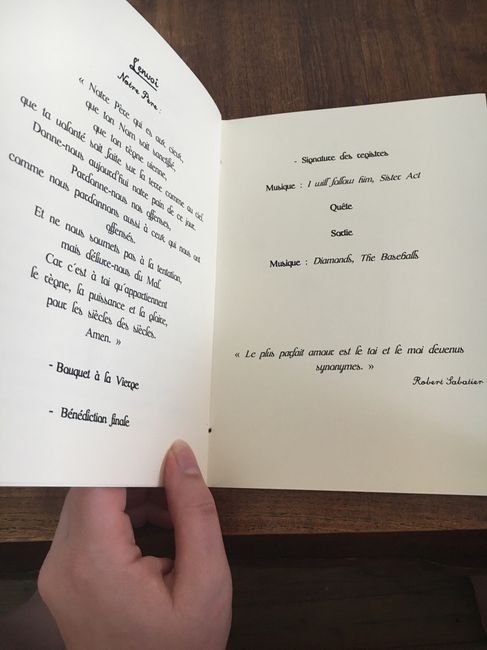 L'envoi
Notre Père :
« Notre Père qui es aux cieux,
que ton Nom soit sanctifié,
que ton règne vienne,
que ta volonté soit faite sur la terre comme au ciel.
Donne-nous aujourd'hui notre pain de ce jour.
Pardonne-nous nos offenses,
comme nous pardonnons aussi à ceux qui nous ont
offensés.
Et ne nous soumets pas à la tentation,
mais délivre-nous du Mal.
Car c'est à toi qu'appartiennent
le règne, la puissance et la gloire,
pour les siècles des siècles.
Amen. »
- Bouquet à la Vierge
- Bénédiction finale
- Signature des registres
Musique : I will follow him, Sister Act
Quête
Sortie
Musique : Diamonds, The Baseballs
« Le plus parfait amour est le toi et le moi devenus
synonymes. »
Robert Sabatier